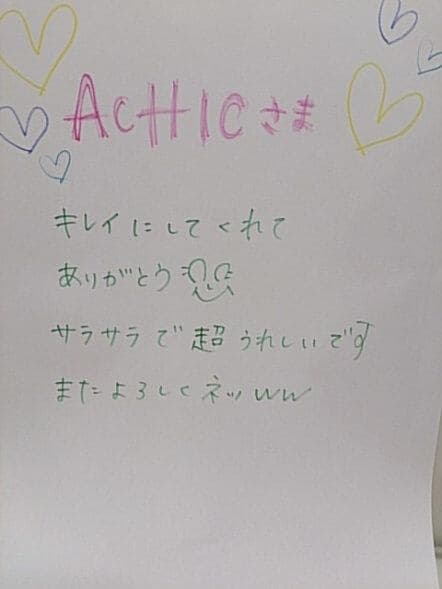 ACHICさま
キレイにしてくれて
ありがとう
サラサラで超うれしいです
またよろしくネッww